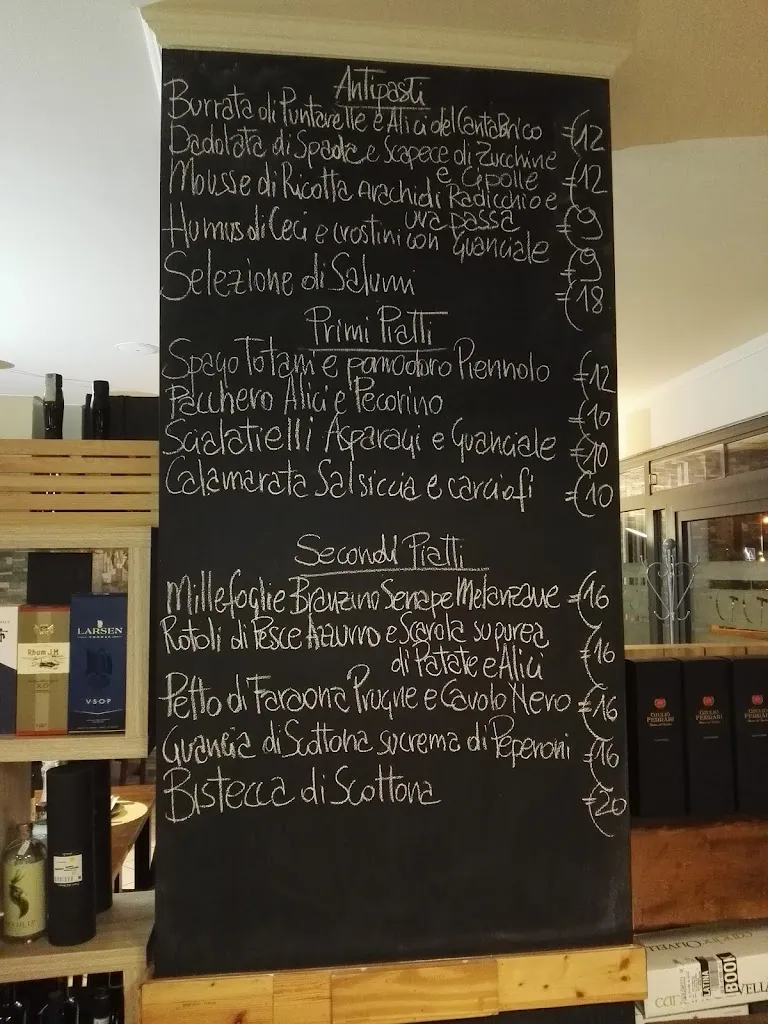 Antipasti
Burrata di Puntarelle e Alici del Cantabrico €12
Dadolata di Spada e Scapece di Zucchine
e Cipolle €12
Mousse di Ricotta Arachidi Radicchio e
uva passa €9
Humus di Ceci e crostini con Guanciale €9
Selezione di Salumi €18
Primi Piatti
Spago Totani e pomodoro Piennolo €12
Pacchero Alici e Pecorino €10
Scialatielli Asparagi e Guanciale €10
Calamarata Salsiccia e carciofi €10
Secondi Piatti
Millefoglie Branzino Senape Melanzane €16
Rotoli di Pesce Azzurro e Scarola su purea
di Patate e Alici €16
Petto di Faraona Prugne e Cavolo Nero €16
Guancia di Scottona su crema di Peperoni €16
Bistecca di Scottona €20
LARSEN
COGNAC
V·S·O·P
Rhum J.M
XO
GIULIO
FERRARI
GIULIO
FERRARI
GIULIO
FERRARI
LATINA